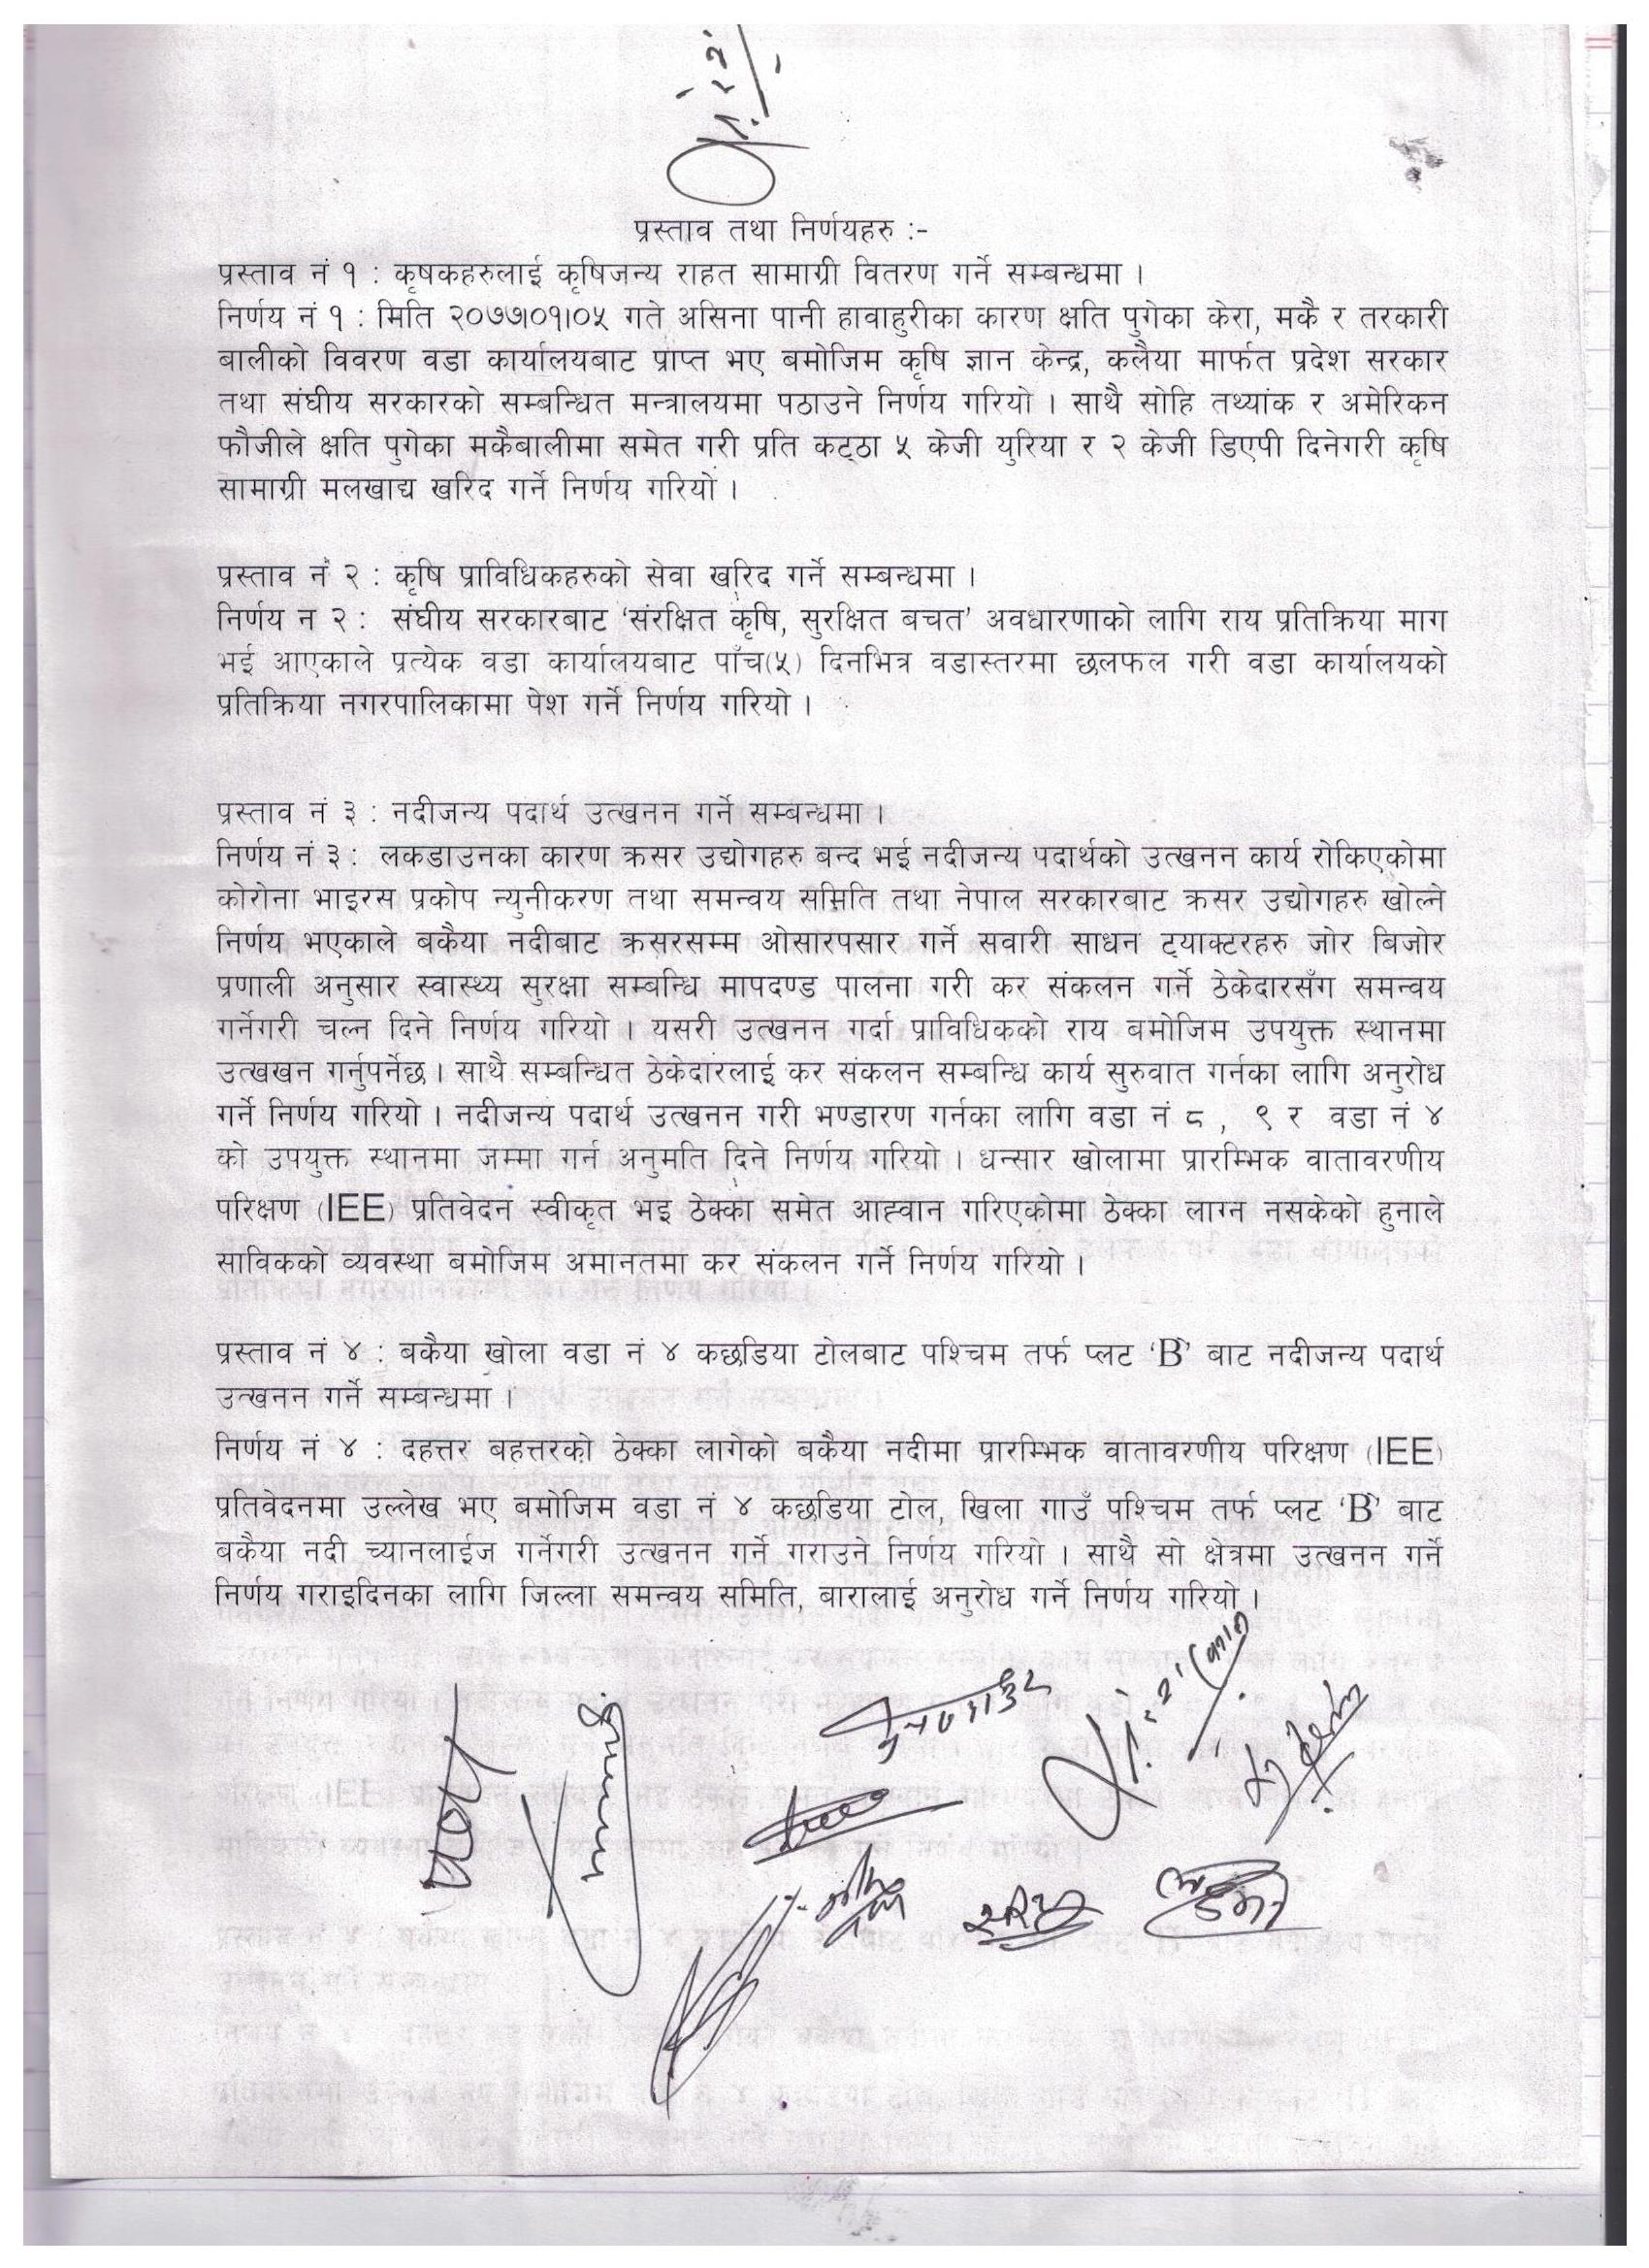 प्रस्ताव तथा निर्णयहरु :-
प्रस्ताव नं १ : कृषकहरुलाई कृषिजन्य राहत सामाग्री वितरण गर्ने सम्बन्धमा ।
निर्णय नं १ : मिति २०७७।०१।०५ गते असिना पानी हावाहुरीका कारण क्षति पुगेका केरा, मकै र तरकारी
बालीको विवरण वडा कार्यालयबाट प्राप्त भए बमोजिम कृषि ज्ञान केन्द्र, कलैया मार्फत प्रदेश सरकार
तथा संघीय सरकारको सम्बन्धित मन्त्रालयमा पठाउने निर्णय गरियो । साथै सोहि तथ्यांक र अमेरिकन
फौजीले क्षति पुगेका मकैबालीमा समेत गरी प्रति कट्ठा ५ केजी युरिया र २ केजी डिएपी दिनेगरी कृषि
सामाग्री मलखाद्य खरिद गर्ने निर्णय गरियो ।
प्रस्ताव नं २ : कृषि प्राविधिकहरुको सेवा खरिद गर्ने सम्बन्धमा ।
निर्णय न २ : संघीय सरकारबाट ‘संरक्षित कृषि, सुरक्षित बचत’ अवधारणाको लागि राय प्रतिक्रिया माग
भई आएकाले प्रत्येक वडा कार्यालयबाट पाँच(५) दिनभित्र वडास्तरमा छलफल गरी वडा कार्यालयको
प्रतिक्रिया नगरपालिकामा पेश गर्ने निर्णय गरियो ।
प्रस्ताव नं ३ : नदीजन्य पदार्थ उत्खनन गर्ने सम्बन्धमा ।
निर्णय नं ३ : लकडाउनका कारण क्रसर उद्योगहरु बन्द भई नदीजन्य पदार्थको उत्खनन कार्य रोकिएकोमा
कोरोना भाइरस प्रकोप न्युनीकरण तथा समन्वय समिति तथा नेपाल सरकारबाट क्रसर उद्योगहरु खोल्ने
निर्णय भएकाले बकैया नदीबाट क्रसरसम्म ओसारपसार गर्ने सवारी साधन ट्याक्टरहरु जोर बिजोर
प्रणाली अनुसार स्वास्थ्य सुरक्षा सम्बन्धि मापदण्ड पालना गरी कर संकलन गर्ने ठेकेदारसँग समन्वय
गर्नेगरी चल्न दिने निर्णय गरियो । यसरी उत्खनन गर्दा प्राविधिकको राय बमोजिम उपयुक्त स्थानमा
उत्खखन गर्नुपर्नेछ । साथै सम्बन्धित ठेकेदारलाई कर संकलन सम्बन्धि कार्य सुरुवात गर्नका लागि अनुरोध
गर्ने निर्णय गरियो । नदीजन्य पदार्थ उत्खनन गरी भण्डारण गर्नका लागि वडा नं ८ , ९ र वडा नं ४
को उपयुक्त स्थानमा जम्मा गर्न अनुमति दिने निर्णय गरियो । धन्सार खोलामा प्रारम्भिक वातावरणीय
परिक्षण (IEE) प्रतिवेदन स्वीकृत भइ ठेक्का समेत आह्वान गरिएकोमा ठेक्का लाग्न नसकेको हुनाले
साविकको व्यवस्था बमोजिम अमानतमा कर संकलन गर्ने निर्णय गरियो ।
प्रस्ताव नं ४ : बकैया खोला वडा नं ४ कछडिया टोलबाट पश्चिम तर्फ प्लट ‘B’ बाट नदीजन्य पदार्थ
उत्खनन गर्ने सम्बन्धमा ।
निर्णय नं ४ : दहत्तर बहत्तरको ठेक्का लागेको बकैया नदीमा प्रारम्भिक वातावरणीय परिक्षण (IEE)
प्रतिवेदनमा उल्लेख भए बमोजिम वडा नं ४ कछडिया टोल, खिला गाउँ पश्चिम तर्फ प्लट ‘B’ बाट
बकैया नदी च्यानलाईज गर्नेगरी उत्खनन गर्ने गराउने निर्णय गरियो । साथै सो क्षेत्रमा उत्खनन गर्ने
निर्णय गराइदिनका लागि जिल्ला समन्वय समिति, बारालाई अनुरोध गर्ने निर्णय गरियो ।